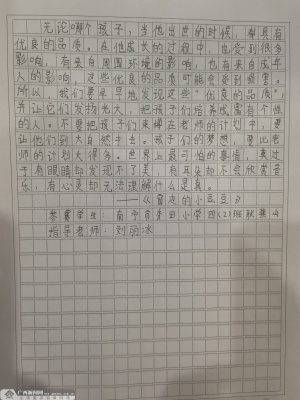 无论哪个孩子，当他出世的时候，都具有
优良的品质。在他成长的过程中，会受到很多
影响，有来自周围环境的影响，也有来自成年
人的影响，这些优良的品质可能会受到损害。
所以，我们要早早地发现这些“优良的品质”，
并让它们发扬光大，把孩子们培养成富有个性
的人。不要把孩子们束缚在老师的计划中，要
让他们到大自然中去。孩子们的梦想，要比老
师的计划大很多。世界上最可怕的事情，莫过
于有眼睛却发现不了美，有耳朵却不会欣赏音
乐，有心灵却无法理解什么是真。
——《窗边的小豆豆》
参赛学生：南宁市秀田小学四(2)班耿
指导老师：刘羽冰
广西新闻网